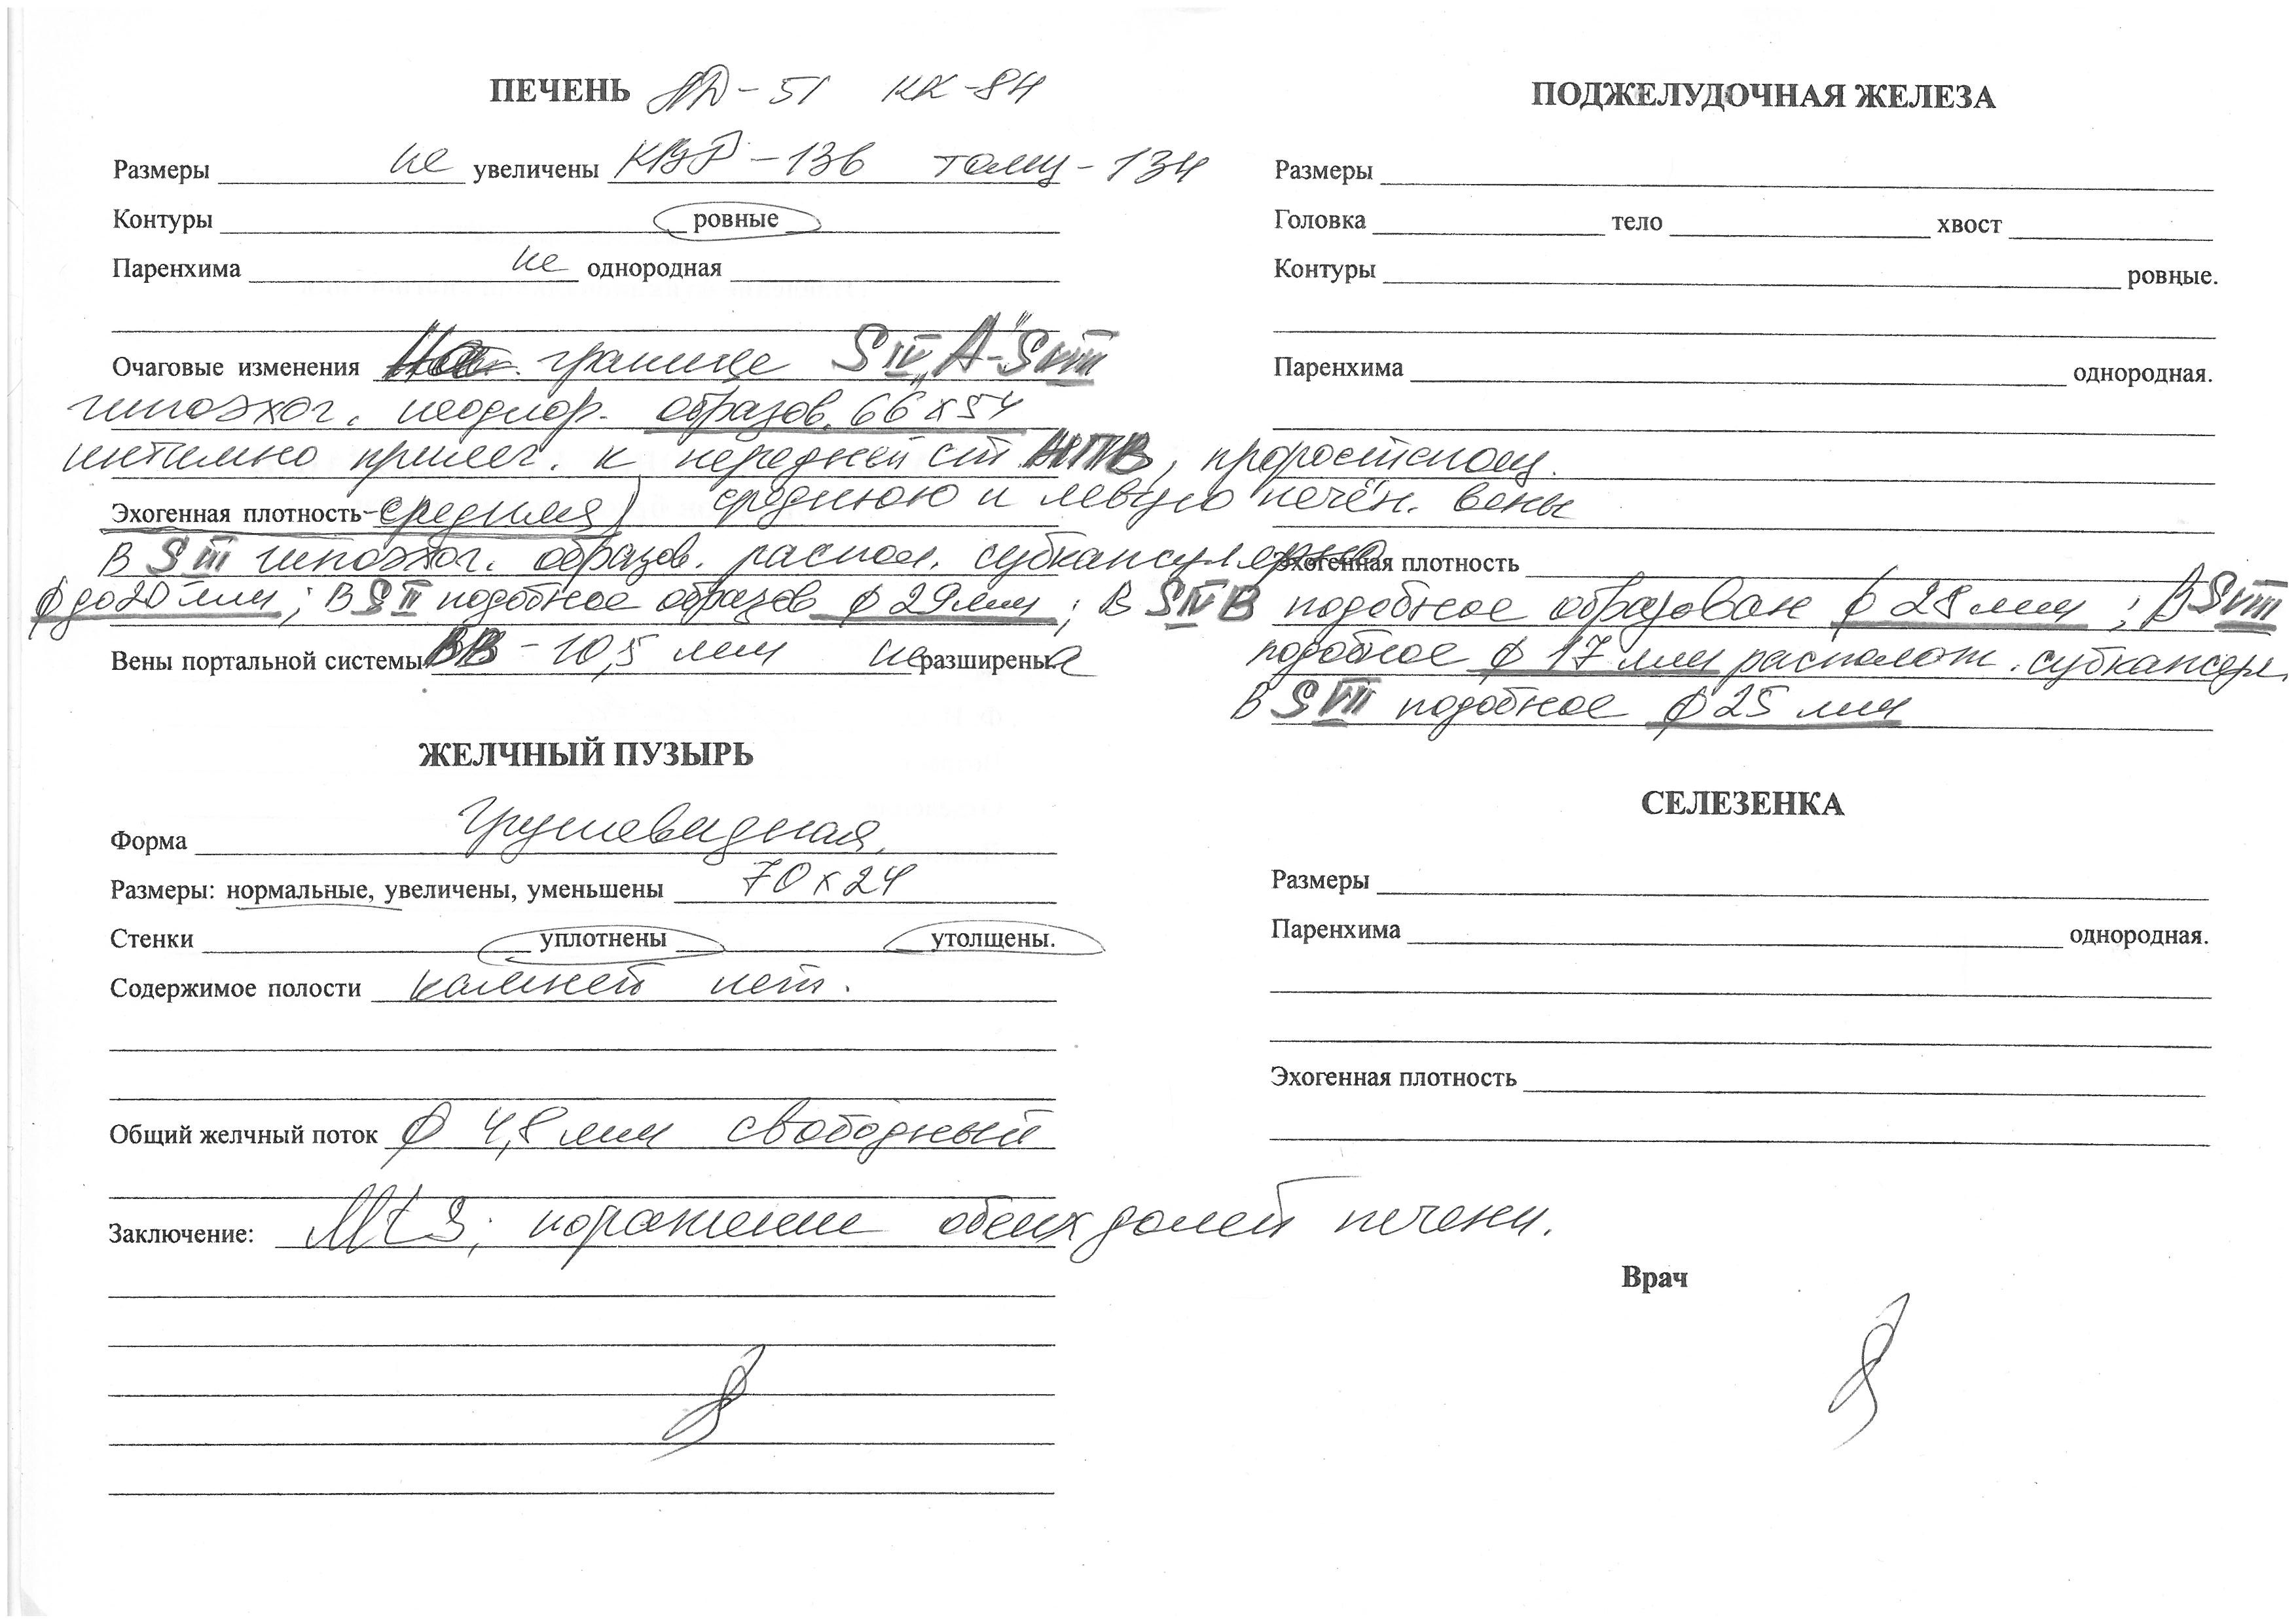 ПЕЧЕНЬ ЛД - 51 КК - 84
Размеры не увеличены КВР - 136 толщ - 134
Контуры ровные
Паренхима не однородная
Очаговые изменения На границе S IV "А" - S VIII
гипоэхог. неоднор. образов. 66 х 54
интимно прилег. к передней ст НПВ,
среднюю и левую печён. вены
Эхогенная плотность - средняя
В S III гипоэхог. образов. распол. субкапсулярно
ф до 20 мм; В S II подобное образов ф 29 мм; В S IV В подобное образован ф 28 мм; В S VIII
подобное ф 17 мм располож. субкапсул.
В S VII подобное ф 25 мм
Вены портальной системы ВВ - 10,5 мм не разширены
ЖЕЛЧНЫЙ ПУЗЫРЬ
Форма грушевидная
Размеры: нормальные, увеличены, уменьшены 70 х 24
Стенки уплотнены утолщены.
Содержимое полости камней нет.
Общий желчный поток ф 4,8 мм свободный
Заключение: Mts; поражение обеих долей печени.
ПОДЖЕЛУДОЧНАЯ ЖЕЛЕЗА
Размеры
Головка тело хвост
Контуры ровные.
Паренхима однородная.
Эхогенная плотность
СЕЛЕЗЕНКА
Размеры
Паренхима однородная.
Эхогенная плотность
Врач